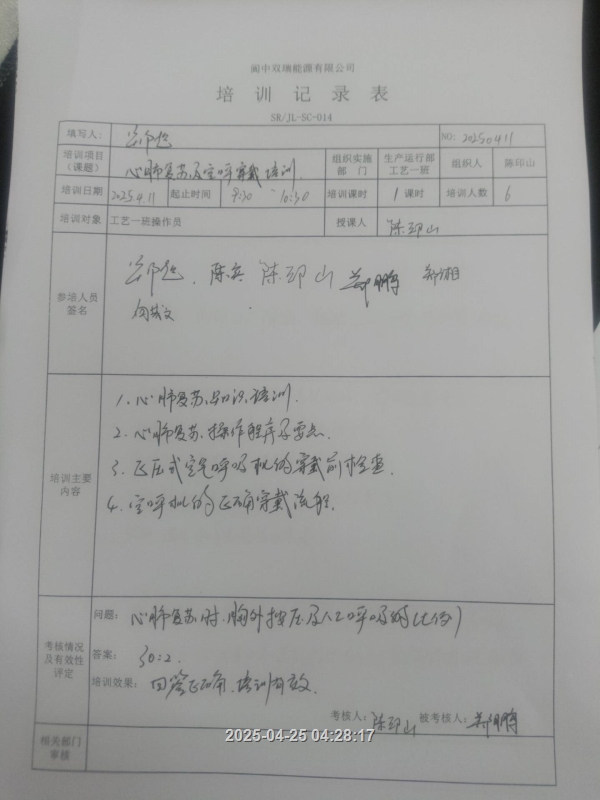 阆中双瑞能源有限公司
培训记录表
SR/JL-SC-014
填写人： NO: 20250411
培训项目（课题） 心肺复苏及空呼穿戴培训. 组织实施部门 生产运行部工艺一班 组织人 陈印山
培训日期 2025.4.11 起止时间 9:30 - 10:30 培训课时 1课时 培训人数 6
培训对象 工艺一班操作员 授课人 陈印山
参培人员签名 陈兵 陈印山 郑鹏
培训主要内容
1. 心肺复苏知识培训.
2. 心肺复苏操作程序及要点.
3. 正压式空气呼吸机的穿戴前检查.
4. 空呼机的正确穿戴流程.
考核情况及有效性评定
问题： 心肺复苏时，胸外按压及人工呼吸的比例）
答案： 30:2.
培训效果： 回答正确，培训有效.
考核人：陈印山 被考核人：郑鹏
相关部门审核
2025-04-25 04:28:17